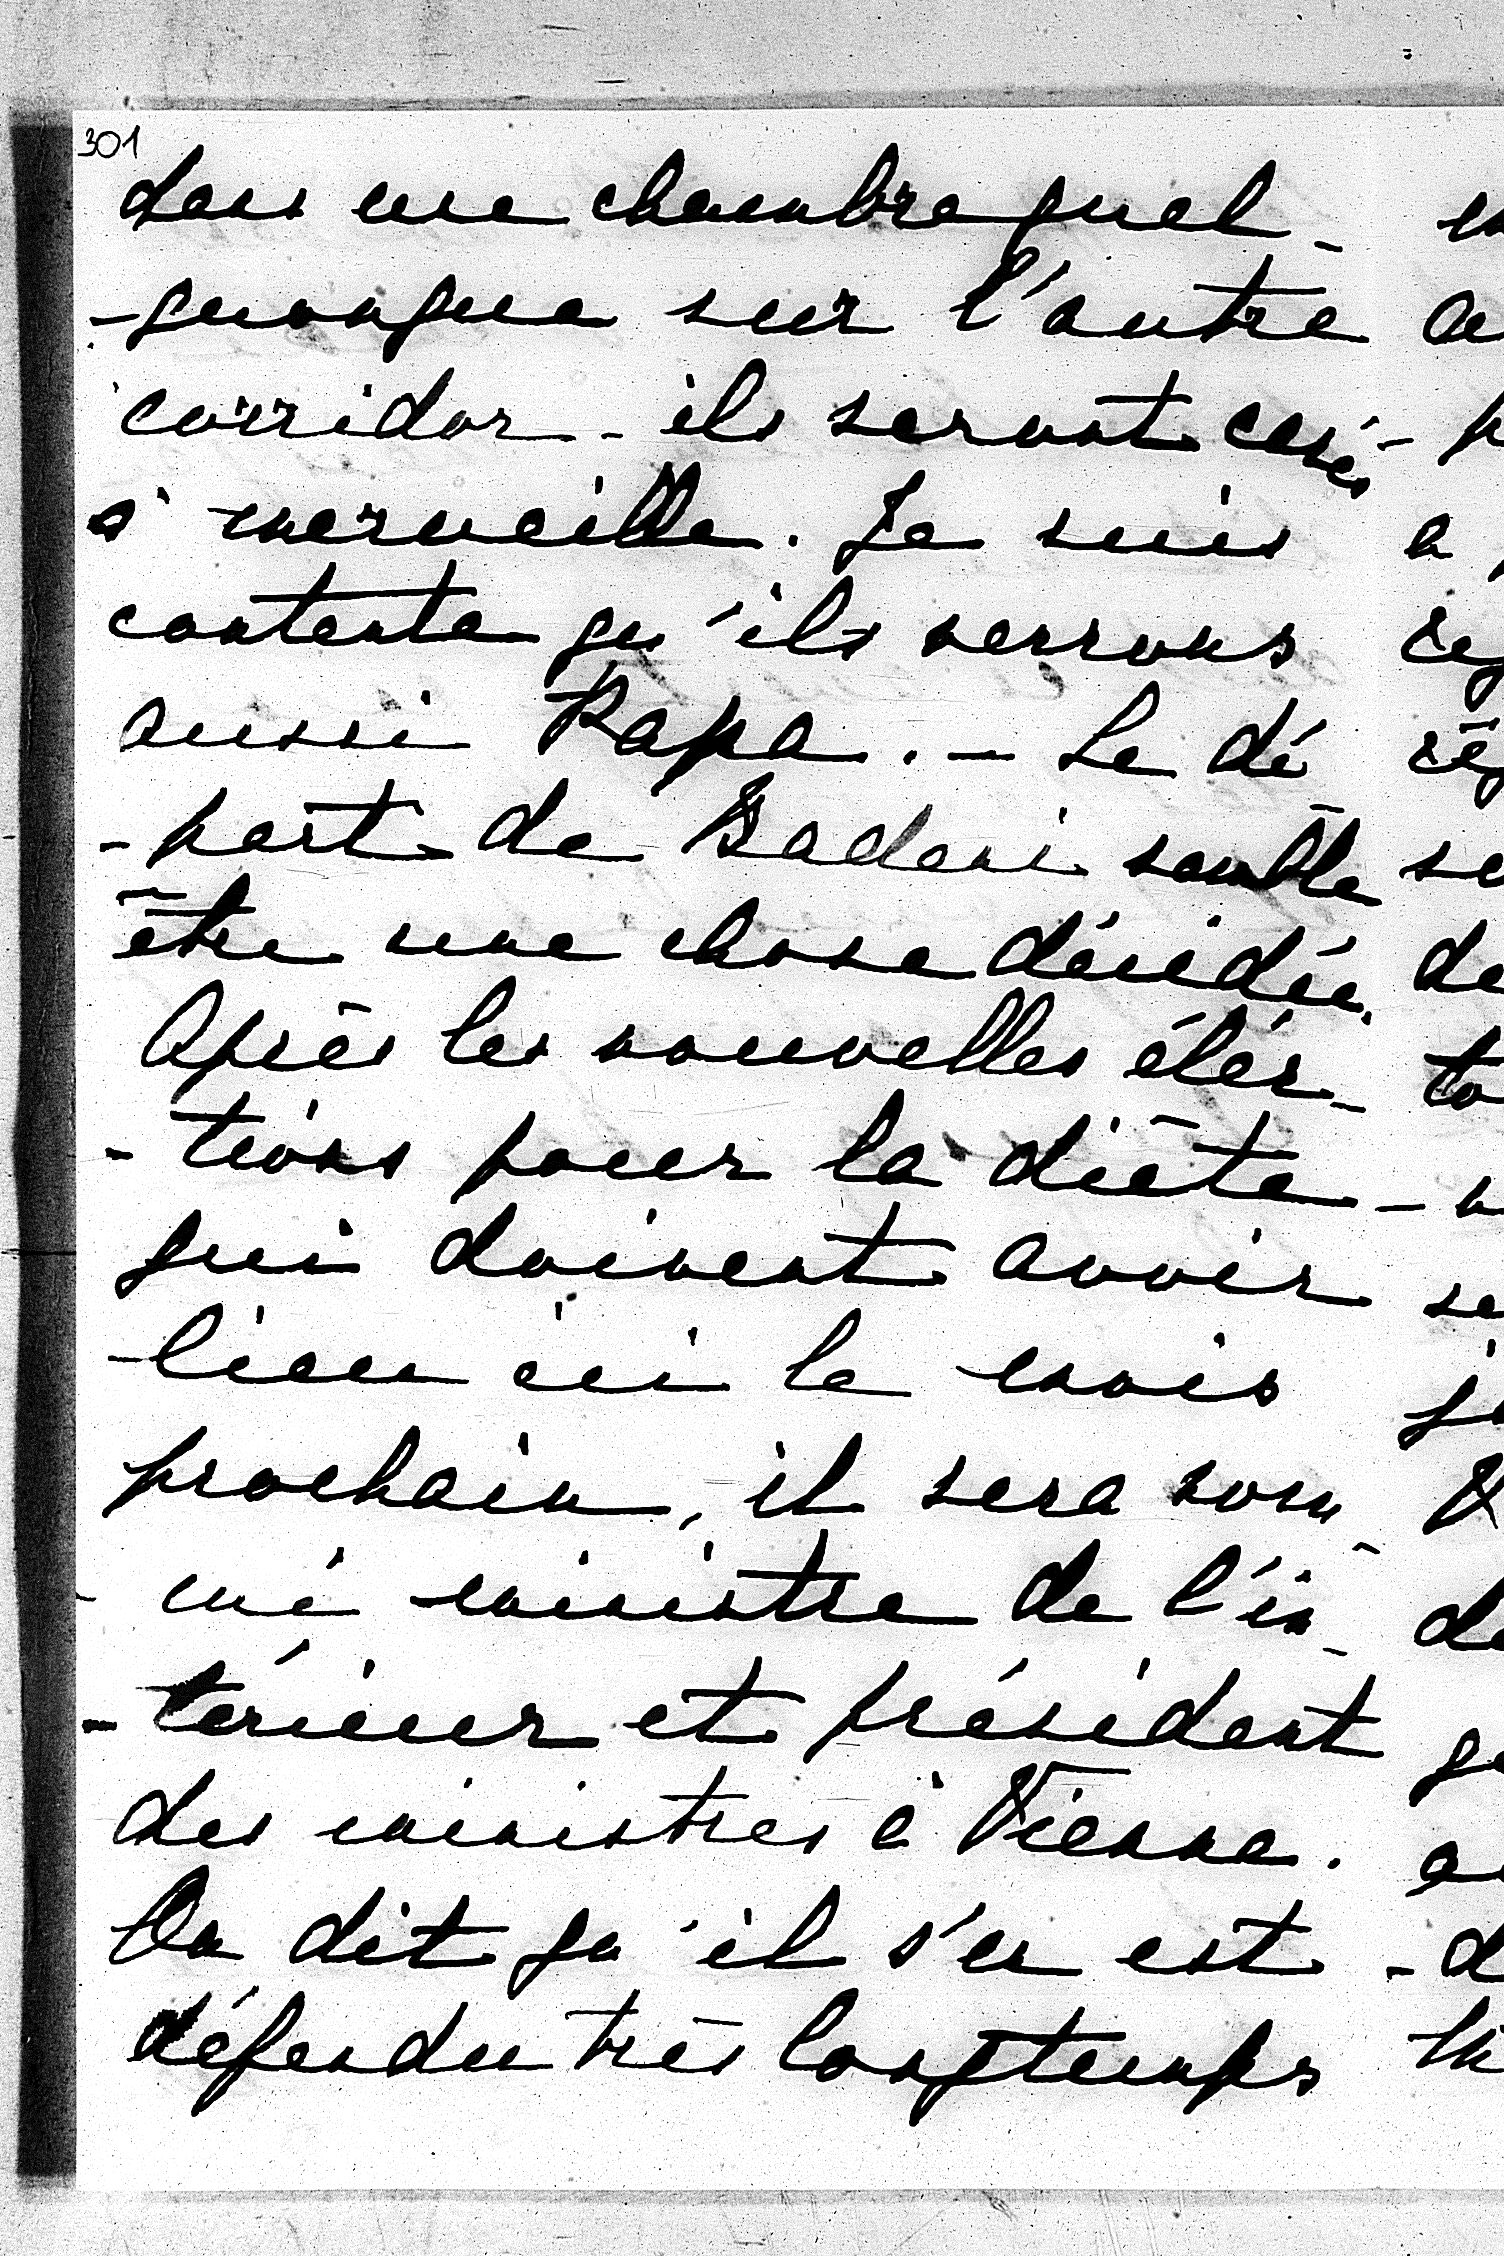 301
dans une chambre quel-
-quonque sur l'autre
corridor - ils seront casés -
à merveille. Je suis
contente qu'ils verrons
aussi Papa. - Le dé
-part de Badeni semble
être une chose décidée.
Après les nouvelles élec-
-tions pour la diète -
qui doivent avoir
-lieu ici le mois
prochain, il sera nom-
-mé ministre de l'in-
-térieur et président
des ministres à Vienne.
On dit qu'il s'en est
défendu très longtemps